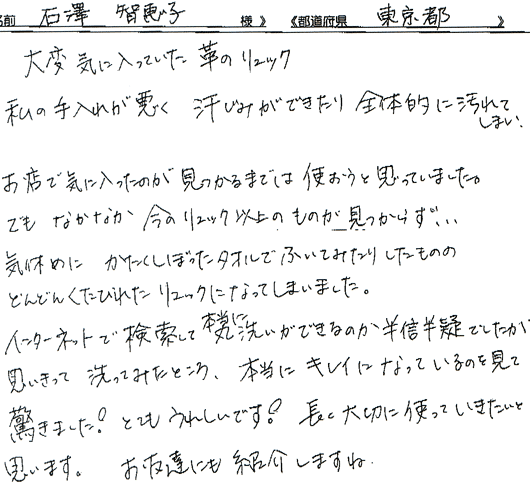 名前 石澤 智恵子 様》 《都道府県 東京都 》
大変気に入っていた革のリュック
私の手入れが悪く 汗じみができたり 全体的に汚れて
しまい、
お店で気に入ったのが見つかるまでは使おうと思っていました。
でも なかなか 今のリュック以上のものが見つからず…
気休めに かたくしぼったタオルでふいてみたりしたものの
どんどんくたびれたリュックになってしまいました。
インターネットで検索して本当に洗いができるのか半信半疑でしたが
思いきって 洗ってみたところ、本当にキレイになっているのを見て
驚きました! とてもうれしいです! 長く大切に使っていきたいと
思います。 お友達にも紹介しますね。